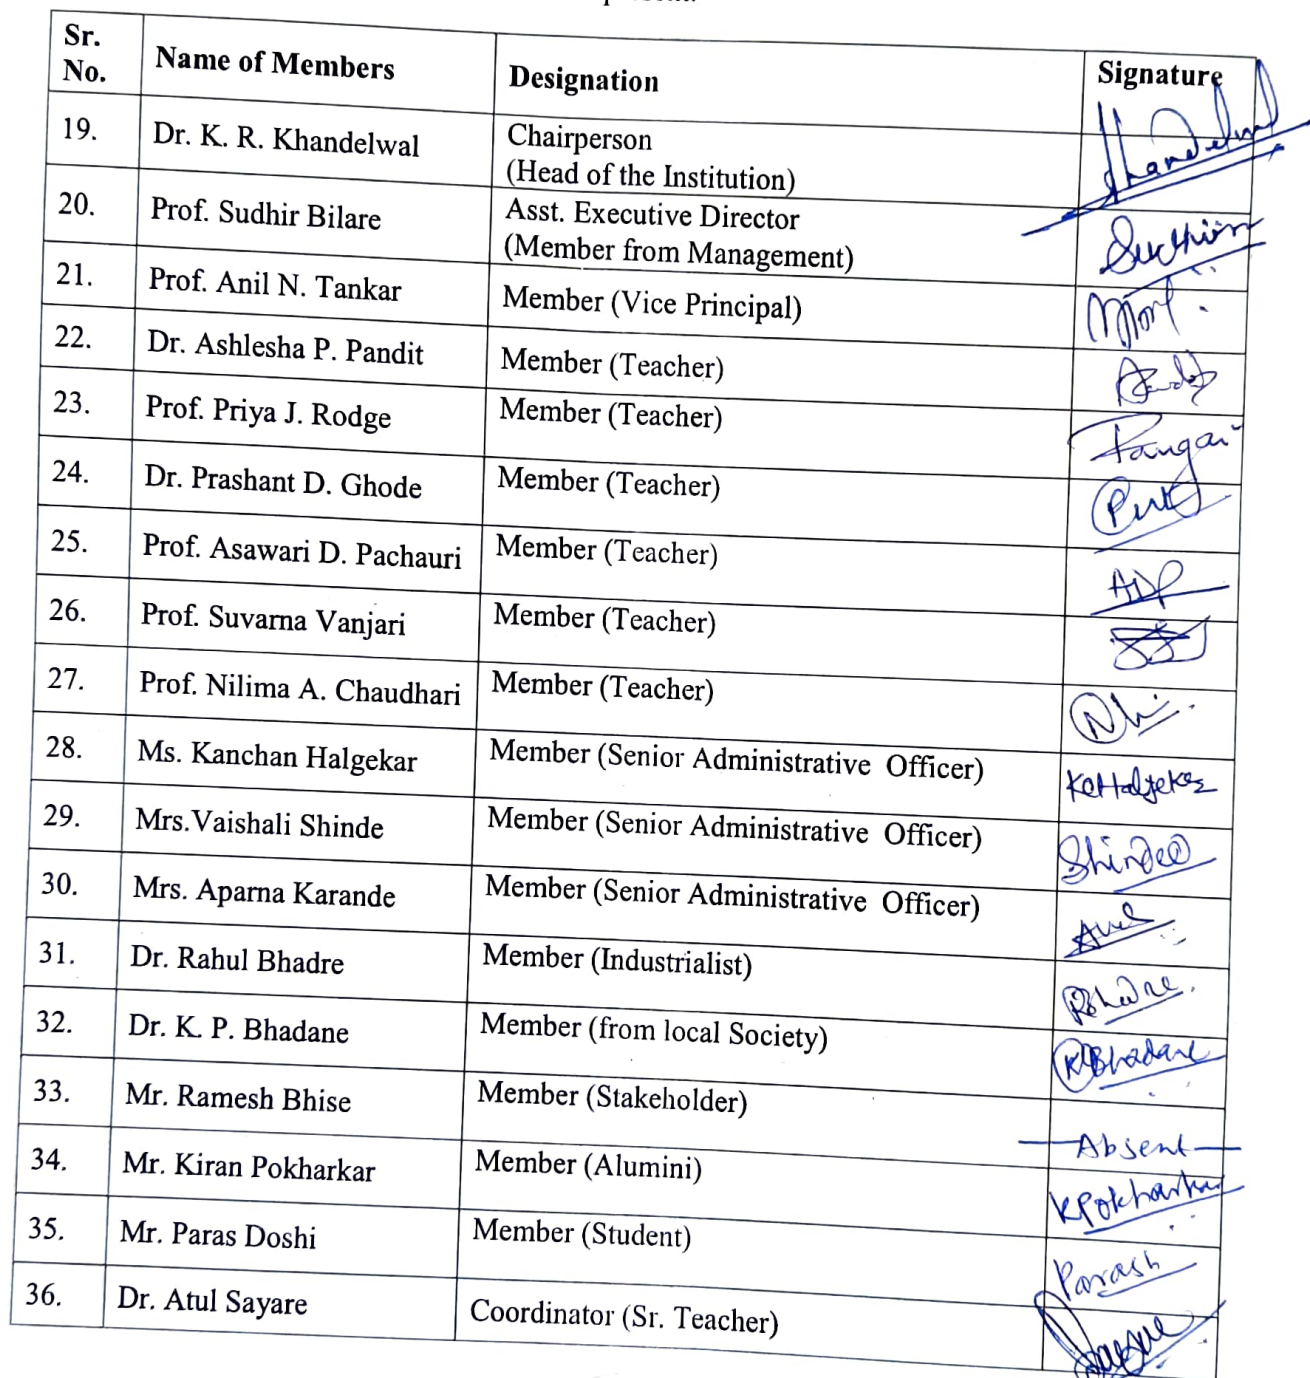 Sr. No. Name of Members Designation Signature
19. Dr. K. R. Khandelwal Chairperson (Head of the Institution) Khandelwal
20. Prof. Sudhir Bilare Asst. Executive Director (Member from Management)
21. Prof. Anil N. Tankar Member (Vice Principal)
22. Dr. Ashlesha P. Pandit Member (Teacher)
23. Prof. Priya J. Rodge Member (Teacher)
24. Dr. Prashant D. Ghode Member (Teacher)
25. Prof. Asawari D. Pachauri Member (Teacher) ADP
26. Prof. Suvarna Vanjari Member (Teacher)
27. Prof. Nilima A. Chaudhari Member (Teacher)
28. Ms. Kanchan Halgekar Member (Senior Administrative Officer)
29. Mrs.Vaishali Shinde Member (Senior Administrative Officer)
30. Mrs. Aparna Karande Member (Senior Administrative Officer)
31. Dr. Rahul Bhadre Member (Industrialist) RBhadre.
32. Dr. K. P. Bhadane Member (from local Society) KPBhadane
33. Mr. Ramesh Bhise Member (Stakeholder) Absent
34. Mr. Kiran Pokharkar Member (Alumini) KPokharkar
35. Mr. Paras Doshi Member (Student)
36. Dr. Atul Sayare Coordinator (Sr. Teacher)